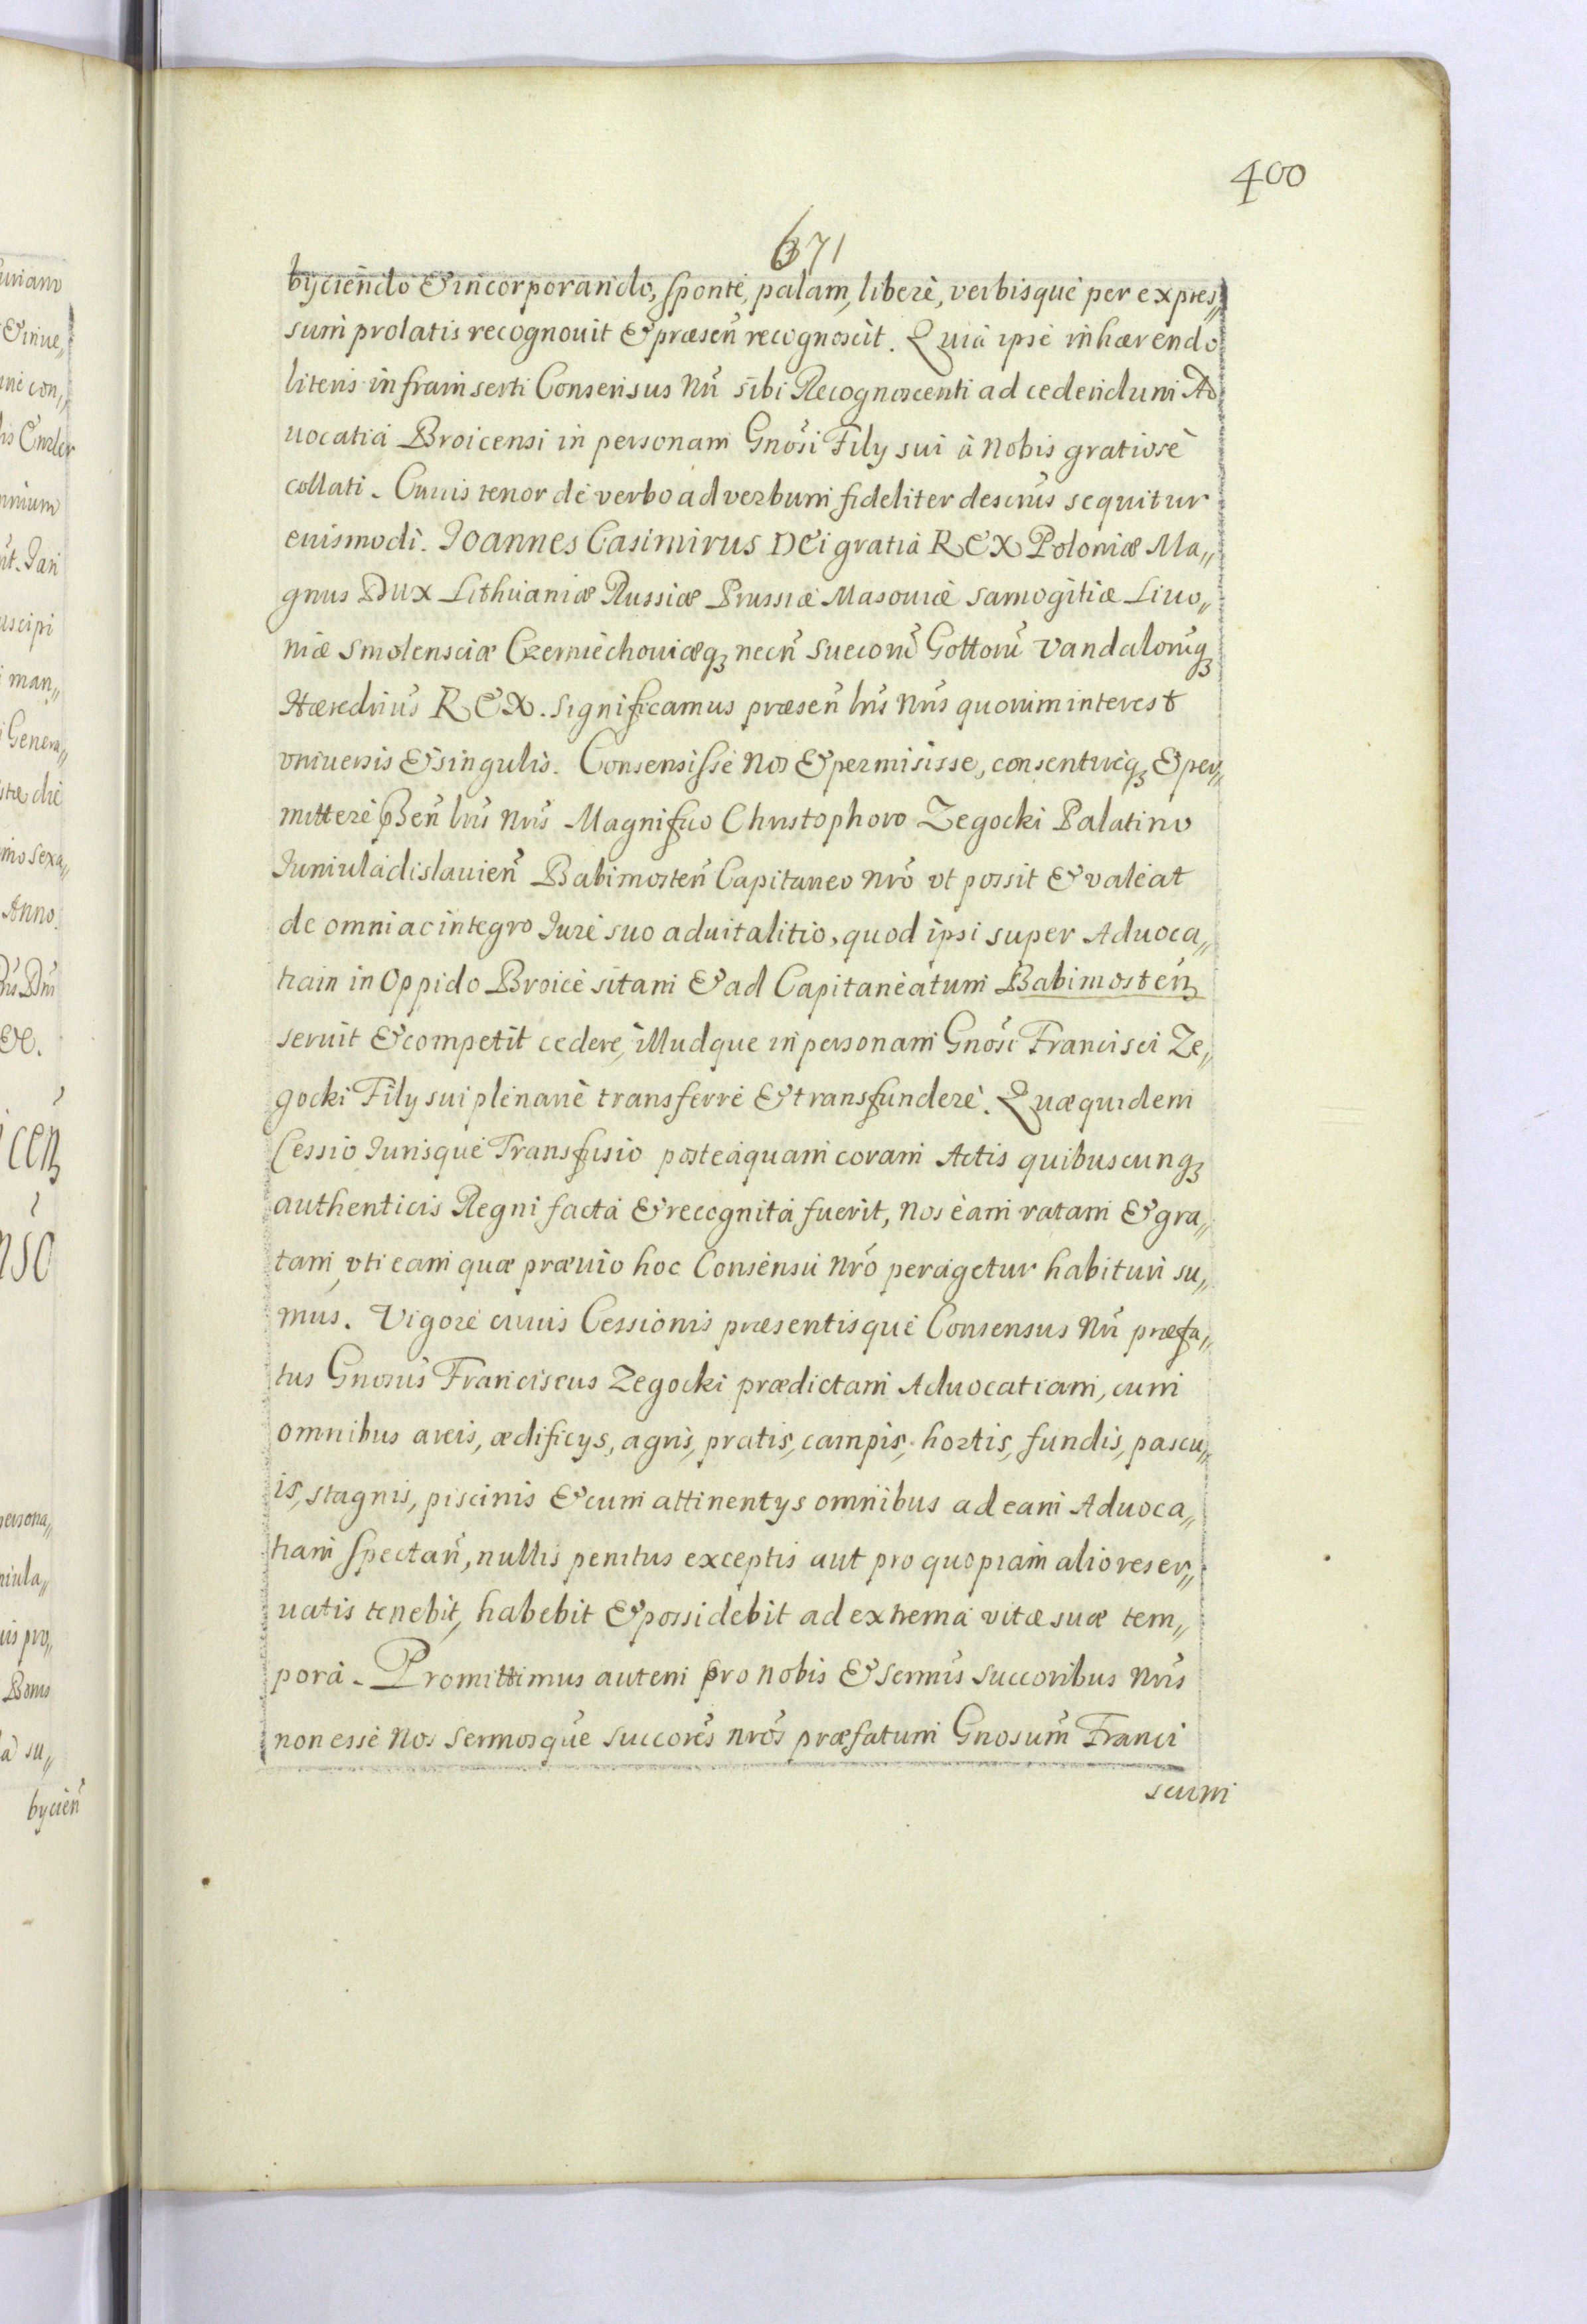 400
671
byciendo & incorporando, sponte, palam, liberè, verbisque per expres„
sum prolatis recognouit & præsen̄ recognoscit. Quia ipse inhærendo
literis infrainserti Consensus Nrī sibi Recognoscenti ad cedendum Ad
uocatia Broicensi in personam Gnosi Filij sui à Nobis gratiosè
collati. Cuius tenor de verbo ad verbum fideliter descrus sequitur
eiusmodi. Joannes Casimirus DEi gratia REX Poloniæ Ma„
gnus Dux Lithuaniæ Russiæ Prussiæ Masouiæ Samogitiæ Liuo„
niæ Smolensciæ Czerniechouiæq; necn̄ Suecorū Gottorū Vandalorūq;
Hæredrius REX. Significamus præsen̄ lrīs Nrīs quorum interest
vniuersis & singulis. Consensisse Nos & permisisse, consentireq; & per„
mittere Psen̄ lrīs Nrīs Magnifico Christophoro Zegocki Palatino
Juniuladislauien̄ Babimosten̄ Capitaneo Nrō vt possit & valeat
de omni ac integro Jure suo aduitalitio, quod ipsi super Aduoca„
tiam in Oppido Broice sitam & ad Capitaneatum Babimosten̄
seruit & competit cedere, illudque in personam Gnosi Francisci Ze„
gocki Filij sui plenarie transferre & transfundere. Quæquidem
Cessio Jurisque Transfusio posteaquam coram Actis quibuscunq;
authenticis Regni facta & recognita fuerit, Nos eam ratam & gra„
tam, vti eam quæ præuio hoc Consensu Nrō peragetur habituri su„
mus. Vigore cuius Cessionis præsentisque Consensus Nrī præfa„
tus Gnosus Franciscus Zegocki prædictam Aduocatiam, cum
omnibus areis, ædificijs, agris, pratis, campis, hortis, fundis, pascu„
is, stagnis, piscinis & cum attinentijs omnibus ad eam Aduoca„
tiam spectan̄, nullis penitus exceptis aut pro quopiam alio reser„
uatis tenebit, habebit & possidebit ad extrema vitæ suæ tem„
pora. Promittimus autem pro Nobis & Sermis Succoribus Nrīs
non esse Nos Sermosque Succores Nrōs præfatum Gnosum Franci
scum